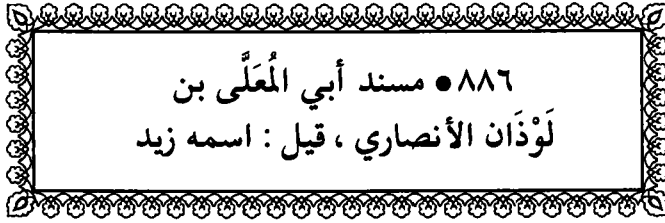 ٨٨٦ ● مسند أبي المُعَلَّى بن
لَوْذَان الأنصاري ، قيل : اسمه زيد